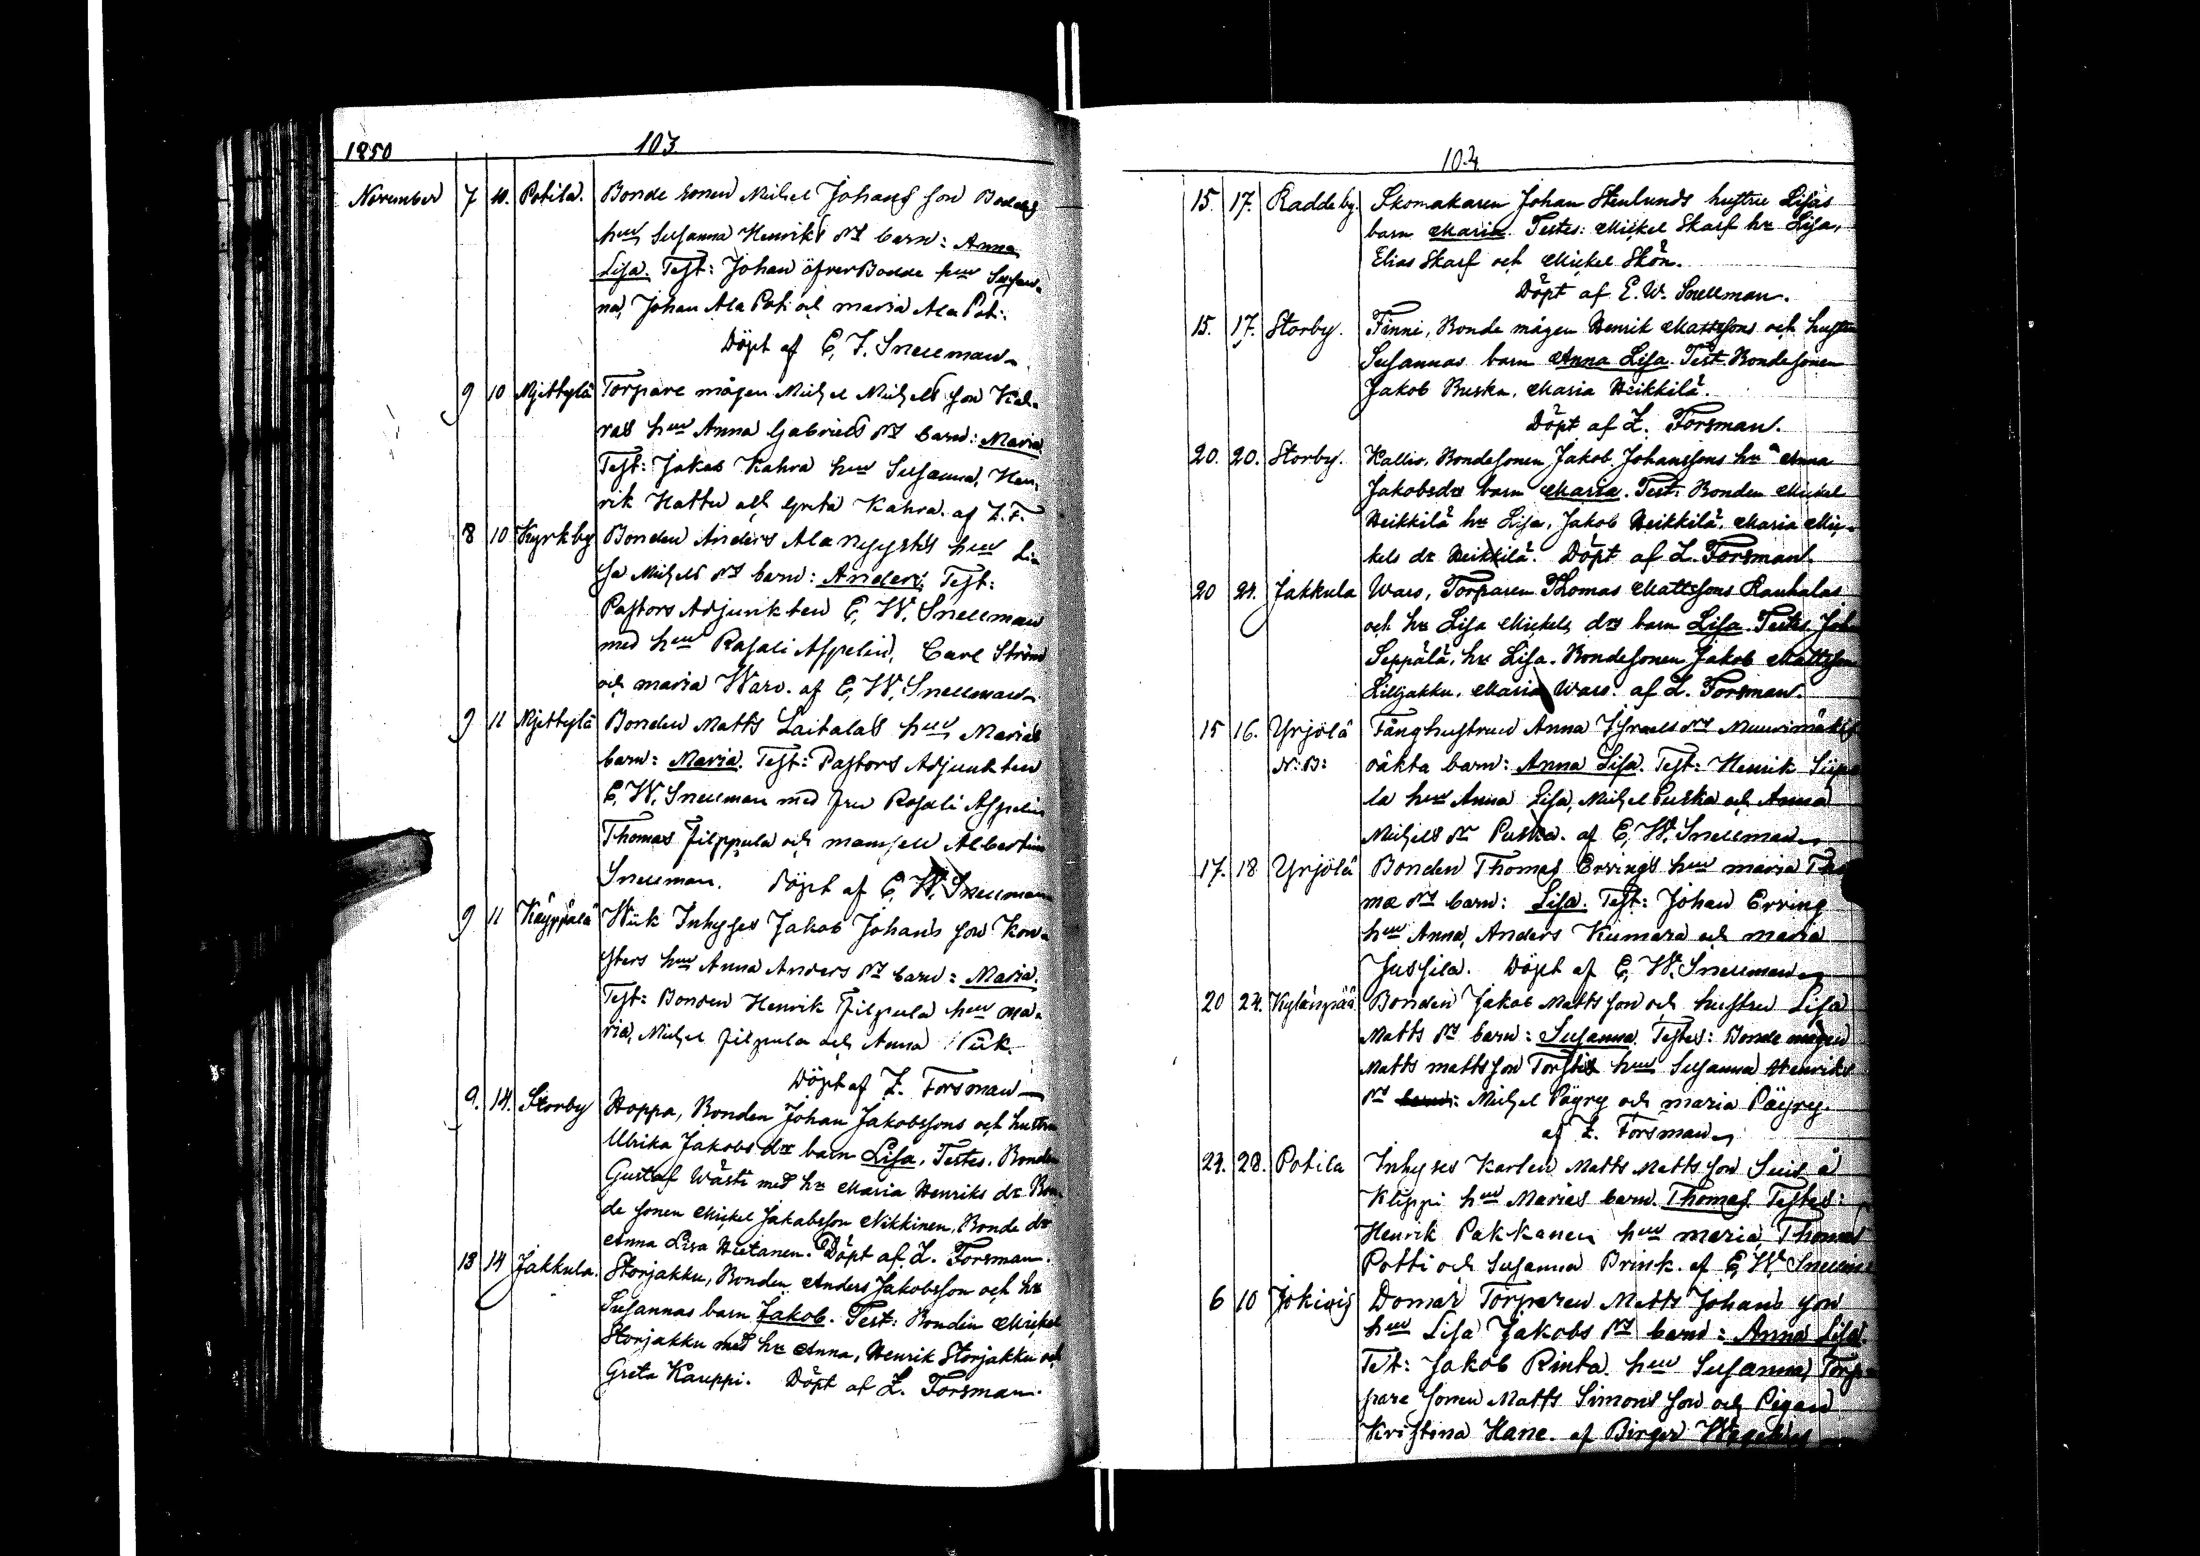 1850
103
November 7 10. Potila. Bonde sonen Michel Johans son Boddas
hun Susanna Henriks dr barn: Anna
Lisa. Test: Johan öfverBodde hun Susan-
na, Johan Ala Poti och maria Ala Poti.
Döpt af E, J. Snellman
9 10 Mjettylä Torpare mågen Michel Michels son Kah-
ras hun Anna Gabriels dr barn: Maria
Test: Jakob Kahra hun Susanna, Hen-
rik Hattu och Greta Kahra. af Z. F.
8 10 Kyrkby Bonden Anders Ala hun Li-
sa Michels dr barn: Anders, Test:
Pastors Adjunkten E, W. Snellman
med hun Rosali Aspelin, Carl Ström
och maria Waro. af E, W. Snellman
9 11 Mjettylä Bonden Matts Laitalas hun Marias
barn: Maria. Test: Pastors Adjunkten
E, W. Snellman med fru Rosali Aspelin
Thomas Filppula och mamsell Albertin
Snellman. Döpt af E, W. Snellman
9 11 Käyppälä Wiik Inhyses Jakob Johans son Kon-
sters hun Anna Anders dr barn: Maria.
Test: Bonden Henrik Filpula hun ma-
ria, Michel Filpula och Anna Piik.
Döpt af Z. Forsman
9. 14. Storby Hoppa, Bonden Johan Jakobssons och hustru
Ulrika Jakobs dr barn Lisa, Testes. Bonden
Gustaf Wästi med hr Maria Henriks dr Bon-
de sonen Mickel Jakobsson Nikkinen, Bonde dr
Anna Lisa Hietanen. Döpt af Z. Forsman.
13 14 Jakkula. Storjakku, Bonden Anders Jakobsson och hr
Susannas barn Jakob. Test: Bonden Mickel
Storjakku med hr Anna, Henrik Storjakku och
Greta Kauppi. Döpt af Z. Forsman.
104
15. 17. Raddeby. Skomakaren Johan Stenlunds hustru Lisas
barn Maria. Testes: Mickel Skarf hr Lisa,
Elias Skarf och Mickel Skön.
Döpt af E. W. Snellman.
15. 17. Storby. Finni, Bonde mågen Henrik Mattssons och hustru
Susannas barn Anna Lisa. Test. Bondesonen
Jakob Buska, Maria Heikkilä.
Döpt af Z. Forsman.
20. 20. Storby. Kallio, Bondesonen Jakob Johanssons hr Anna
Jakobsdr barn Maria. Test: Bonden Mickel
Heikkilä hr Lisa, Jakob Heikkilä. Maria Mic-
kels dr Heikkilä. Döpt af Z. Forsman.
20 24. Jakkula Waro, Torparen Thomas Mattssons Rauhalas
och hr Lisa Mickels drs barn Lisa. Testes. Joh
Seppälä, hr Lisa. Bondesonen Jakob Mattsson
Lilljakku. Maria Waro. af Z. Forsman.
15 16. Yrjölä Fånghustrun Anna Israels dr Muurimäkis
N:B: oäkta barn: Anna Lisa. Test: Henrik Siipo
la hun Anna Lisa, Michel Puska och Anna
Michels dr Puska. af E, W. Snellman
17. 18 Yrjölä Bonden Thomas Ervings hun maria Tho
mæ dr barn: Lisa. Test: Johan Erving
hun Anna, Anders Kumara och maria
Jussila. Döpt af E, W. Snellman
20 24. Kylänpää Bonden Jakob Matts son och hustru Lisa
Matts dr barn: Susanna. Testes: Bonde mågen
Matts mattsson Torstis hun Susanna Henriks
dr barn: Michel Päyry och maria Päyry.
af Z. Forsman
24. 28. Potila Inhyses Karlen Matts Matts son Suis å
Klippi hun Marias barn. Thomas. Testes:
Henrik Pakkanen hun maria, Thomas
Potti och Susanna Brink. af E, W. Snellman
6 10 Domar Torparen Matts Johans son
hun Lisa Jakobs dr barn: Anna Lisa.
Test: Jakob Rinta. hun Susanna, Torp-
pare sonen Matts Simons son och Pigan
Kristina Hane. af Birger